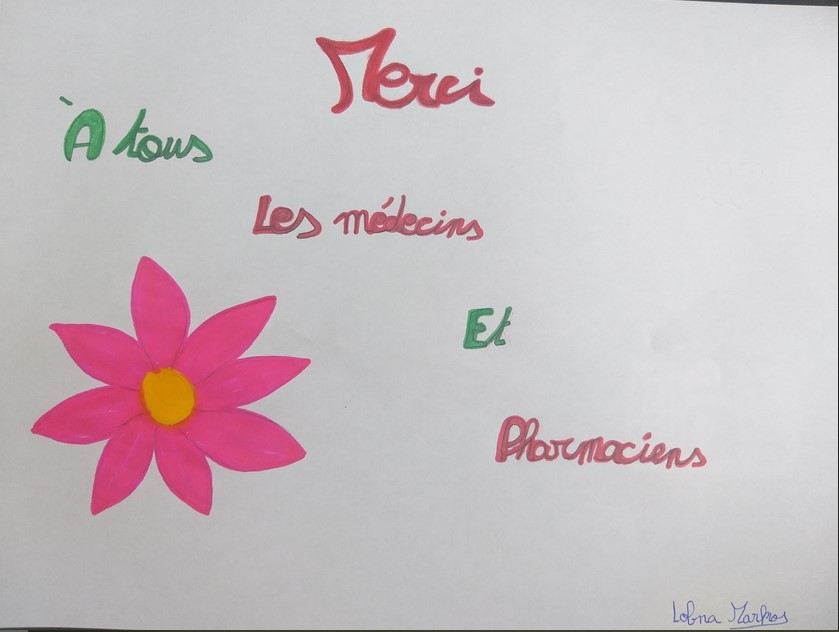 Merci
À tous
Les médecins
Et
Pharmaciens
Lobna